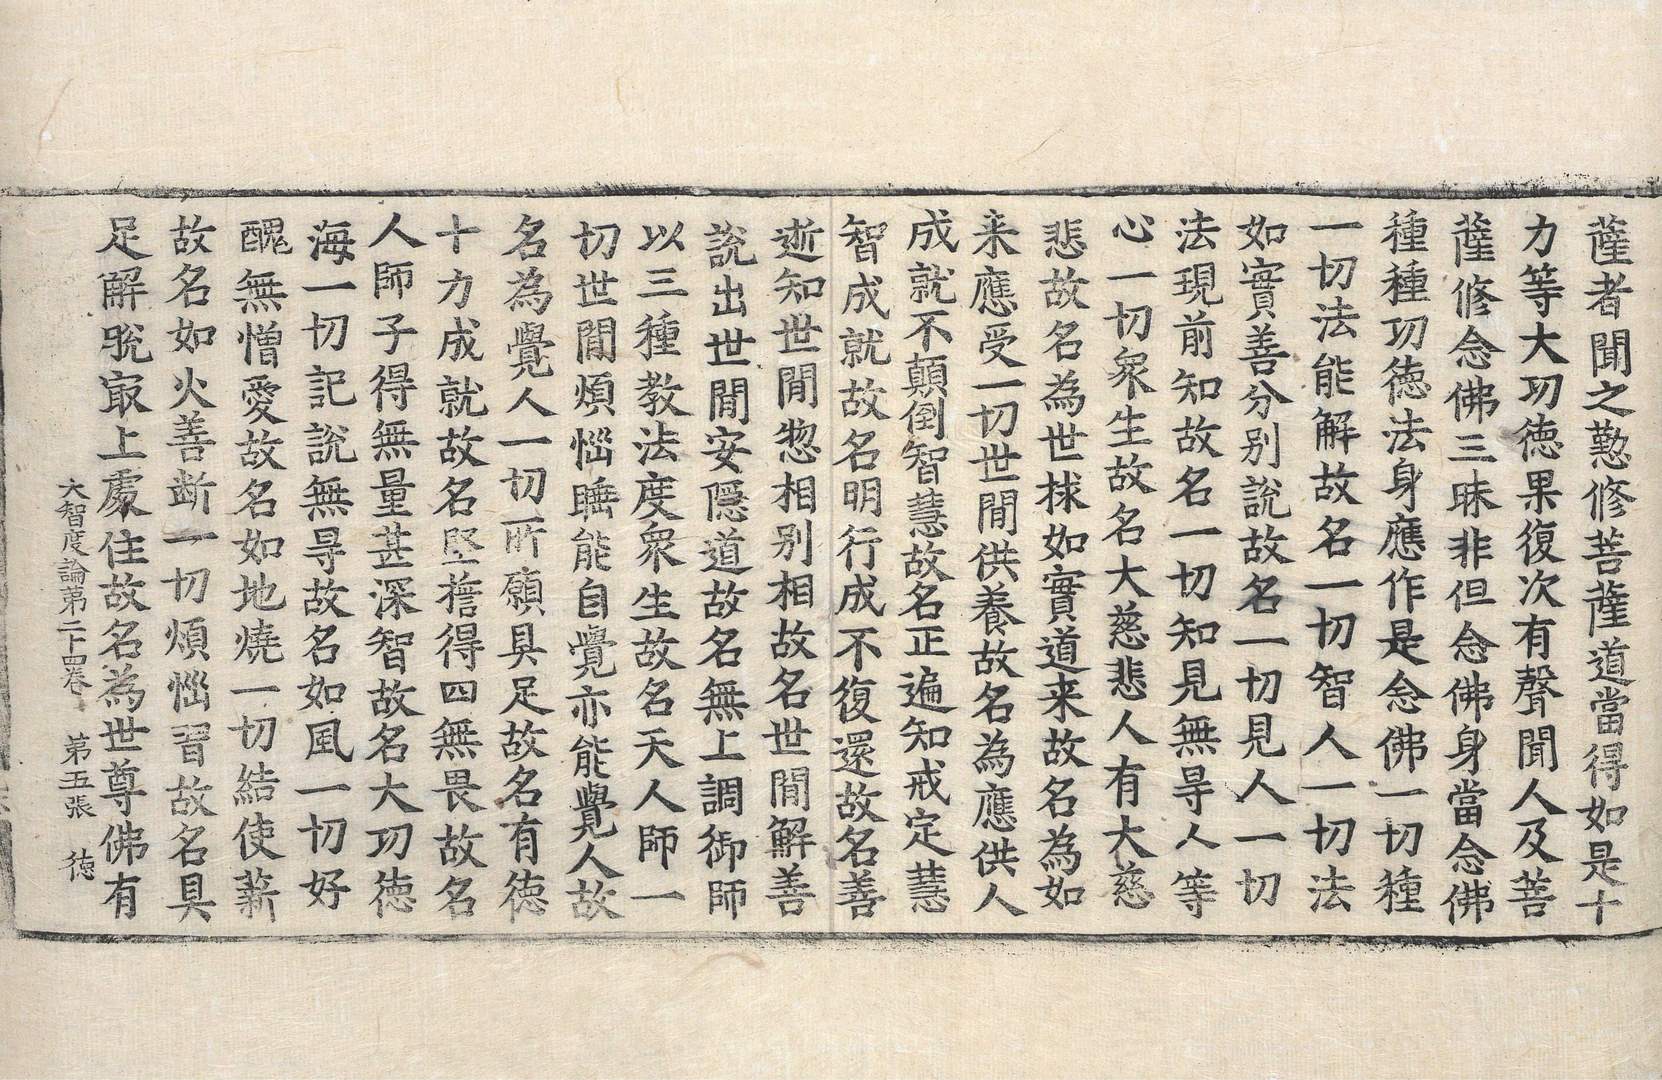 薩者聞之懃修菩薩道當得如是十
力等大功徳果復次有聲聞人及菩
薩修念佛三昧非但念佛身當念佛
種種功徳法身應作是念佛一切種
一切法能解故名一切智人一切法
如實善分别說故名一切見人一切
法現前知故名一切知見無㝵人等
心一切衆生故名大慈悲人有大慈
悲故名為世救如實道来故名為如
来應受一切世間供養故名為應供人
成就不顛倒智慧故名正遍知戒定慧
智成就故名明行成不復還故名善
逝知世間惣相别相故名世間解善
說出世間安隱道故名無上調御師
以三種教法度衆生故名天人師一
切世間煩惱睡能自覺亦能覺人故
名為覺人一切所願具足故名有徳
十力成就故名堅擔得四無畏故名
人師子得無量甚深智故名大功徳
海一切記說無㝵故名如風一切好
醜無憎愛故名如地燒一切結使薪
故名如火善断一切煩惱習故名具
足解脫㝡上處住故名為世尊佛有
大智度論第二十四卷 第五張 徳